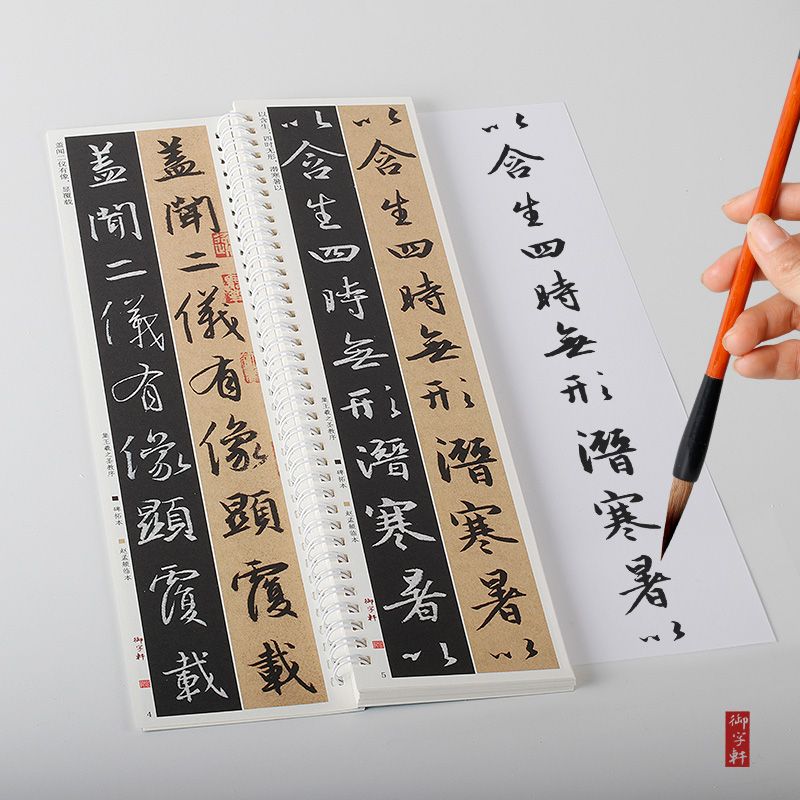 盖闻二仪有像，显覆载
蓋聞二儀有像顯覆載
蓋聞二儀有像顯覆載
集王羲之圣教序 碑拓本 赵孟頫临本
御字軒
4
以含生；四时无形，潜寒暑以
以含生四時無形潛寒暑以
以含生四時無形潛寒暑以
集王羲之圣教序 碑拓本 赵孟頫临本
御字軒
5
以含生四時無形潛寒暑以
御字軒